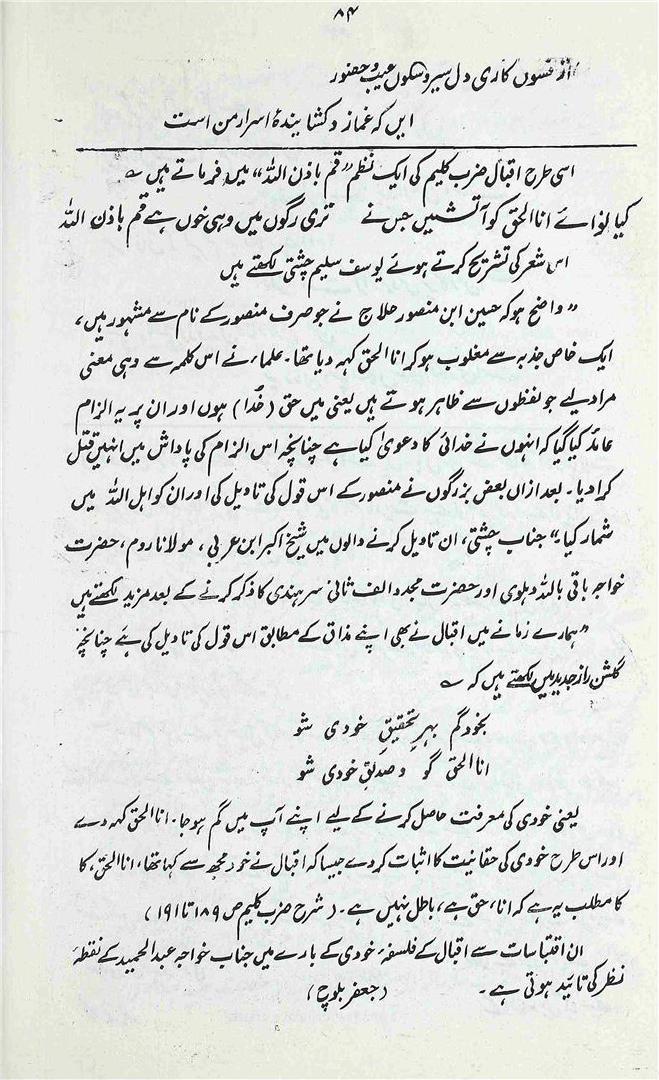 ۸۴
از فسوں کاری دل سیر و سکوں غیب و حضور
ایں کہ غماز و کشایندۂ اسرار من است
اسی طرح اقبال ضرب کلیم کی ایک نظم ”قم باذن اللہ“ میں فرماتے ہیں ؎
کیا نوائے انا الحق کو آتشیں جس نے تری رگوں میں وہی خوں ہے قم باذن اللہ
اس شعر کی تشریح کرتے ہوئے یوسف سلیم چشتی لکھتے ہیں
”واضح ہو کہ حسین ابن منصور حلاج نے جو صرف منصور کے نام سے مشہور ہیں،
ایک خاص جذبہ سے مغلوب ہو کر انا الحق کہہ دیا تھا۔ علماء نے اس کلمہ سے وہی معنی
مراد لیے جو لفظوں سے ظاہر ہوتے ہیں یعنی میں حق (خُدا) ہوں اور ان پر یہ الزام
عائد کیا گیا کہ انہوں نے خدائی کا دعویٰ کیا ہے چنانچہ اس الزام کی پاداش میں انہیں قتل
کرا دیا۔ بعد ازاں بعض بزرگوں نے منصور کے اس قول کی تاویل کی اور ان کو اہل اللہ میں
شمار کیا۔“ جناب چشتی، ان تاویل کرنے والوں میں شیخ اکبر ابن عربی، مولانا روم، حضرت
خواجہ باقی باللہ دہلوی اور حضرت مجدد الف ثانی سرہندی کا ذکر کرنے کے بعد مزید لکھتے ہیں
”ہمارے زمانے میں اقبال نے بھی اپنے مذاق کے مطابق اس قول کی تاویل کی ہے چنانچہ
گلشن راز جدید میں لکھتے ہیں کہ ؎
بخود گم بہر تحقیقِ خودی شو
انا الحق گو و صدیقِ خودی شو
یعنی خودی کی معرفت حاصل کرنے کے لیے اپنے آپ میں گم ہو جا۔ انا الحق کہہ دے
اور اس طرح خودی کی حقانیت کا اثبات کر دے جیسا کہ اقبال نے خود مجھ سے کہا تھا، انا الحق، کا
کا مطلب یہ ہے کہ انا، حق ہے، باطل نہیں ہے۔ (شرح ضرب کلیم ص ۱۸۹ تا ۱۹۱)
ان اقتباسات سے اقبال کے فلسفہ خودی کے بارے میں جناب خواجہ عبدالحمید کے نقطۂ
نظر کی تائید ہوتی ہے۔ (جعفر بلوچ)